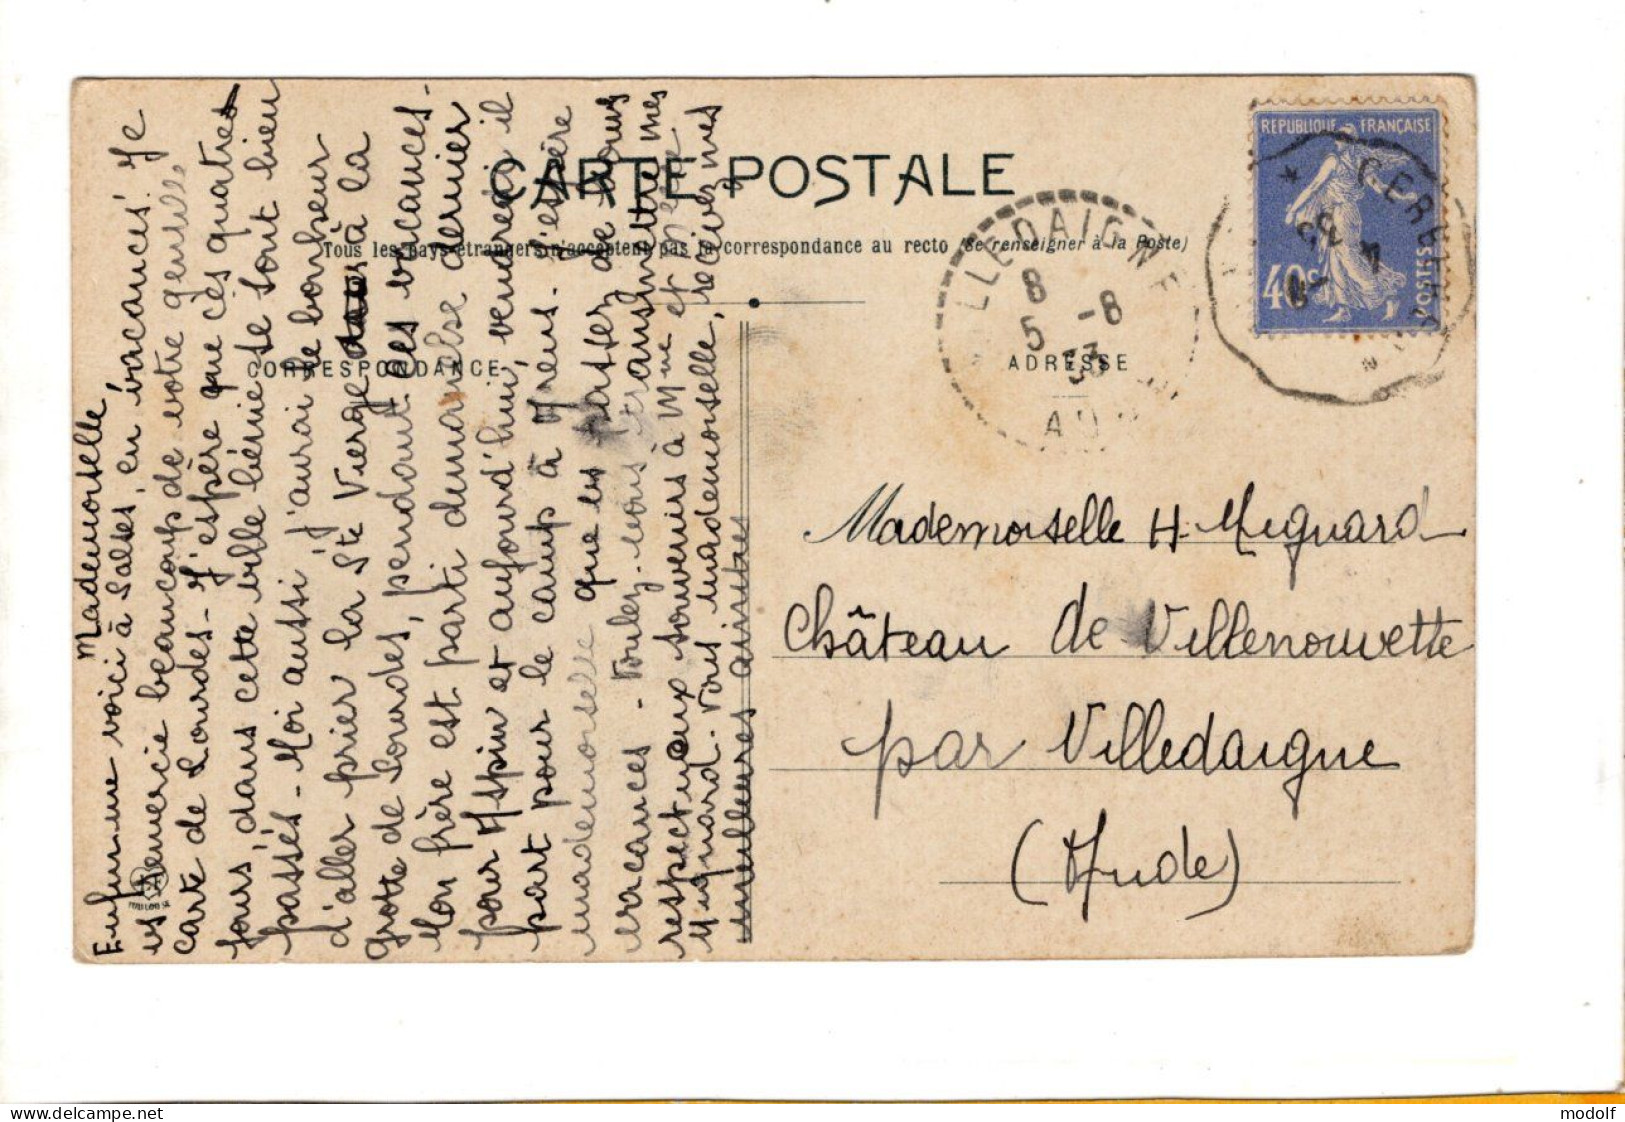 CARTE POSTALE
Tous les pays étrangers n'acceptent pas la correspondance au recto (Se renseigner à la Poste)
CORRESPONDANCE
ADRESSE
REPUBLIQUE FRANÇAISE
40c
POSTES
CERE
4
VILLEDAIGNE
8
5 -8
33
AU
Mademoiselle
Enfin me voici à Salses, en vacances! Je
vs remercie beaucoup de votre gentille
carte de Lourdes - J'espère que ces quatres
jours, dans cette ville bénie se sont bien
passés - Moi aussi, j'aurai le bonheur
d'aller prier la Ste Vierge à la
grotte de Lourdes, pendant les vacances -
Mon frère est parti dimanche dernier
pour Aspin et aujourd'hui, vendredi il
part pour le camp à Arrens. J'espère
mademoiselle que vs passez de bonnes
vacances - Voulez-vous transmettre mes
respectueux souvenirs à Mme et
Mignard. Vous mademoiselle, recevez mes
meilleures amitiés
Mademoiselle H. Mignard
Château de Villenouvette
par Villedaigne
(Aude)
delcampe.net
modolf